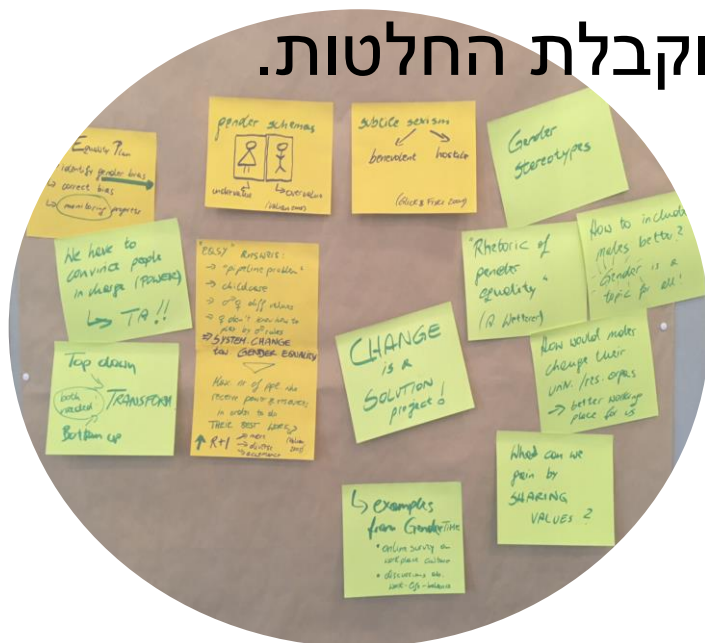 וקבלת החלטות.
Equality Plan
identify gender bias
↳ correct bias
↳ monitoring progress
gender schemas
undervalue
↳ overvalue
(Valian 2005)
subtle sexism
benevolent hostile
(Glick & Fiske 2001)
Gender
stereotypes
We have to
convince people
in charge (POWER)
↳ TA!!
"EASY" ANSWERS:
→ "pipeline problem"
→ childcare
→ ♂♀ diff values
→ ♀ don't know how to
play by ♂ rules
⇒ SYSTEM-CHANGE
for GENDER EQUALITY
How nr of ppl who
receive power & resources
in order to do
THEIR BEST WORK?
↑ R+I → more
→ diverse
"Rhetoric of
gender
equality"
(A. Wetterer)
How to include
males better?
"Gender is a
topic for all!
Top down
both
needed
TRANSFORM
Bottom up
CHANGE
is a
SOLUTION
project!
How would males
change their
univ./res. orgas
→ better working
place for us
What can we
gain by
SHARING
VALUES?
↳ examples
from GenderTIME
• online survey on
workplace culture
• discussions ab.
work-life-balance